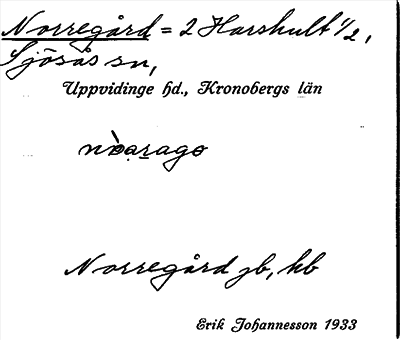 Norregård = 2 Harshult 1/2,
Sjösås sn,
Uppvidinge hd., Kronobergs län
Norregård jb, kb
Erik Johannesson 1933